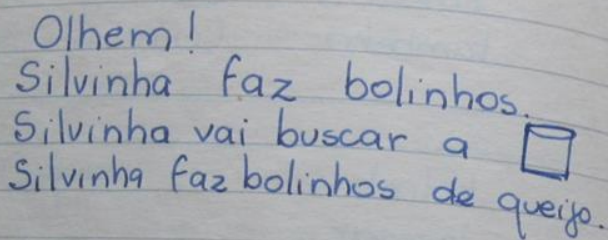 Olhem!
Silvinha faz bolinhos.
Silvinha vai buscar a
Silvinha faz bolinhos de queijo.